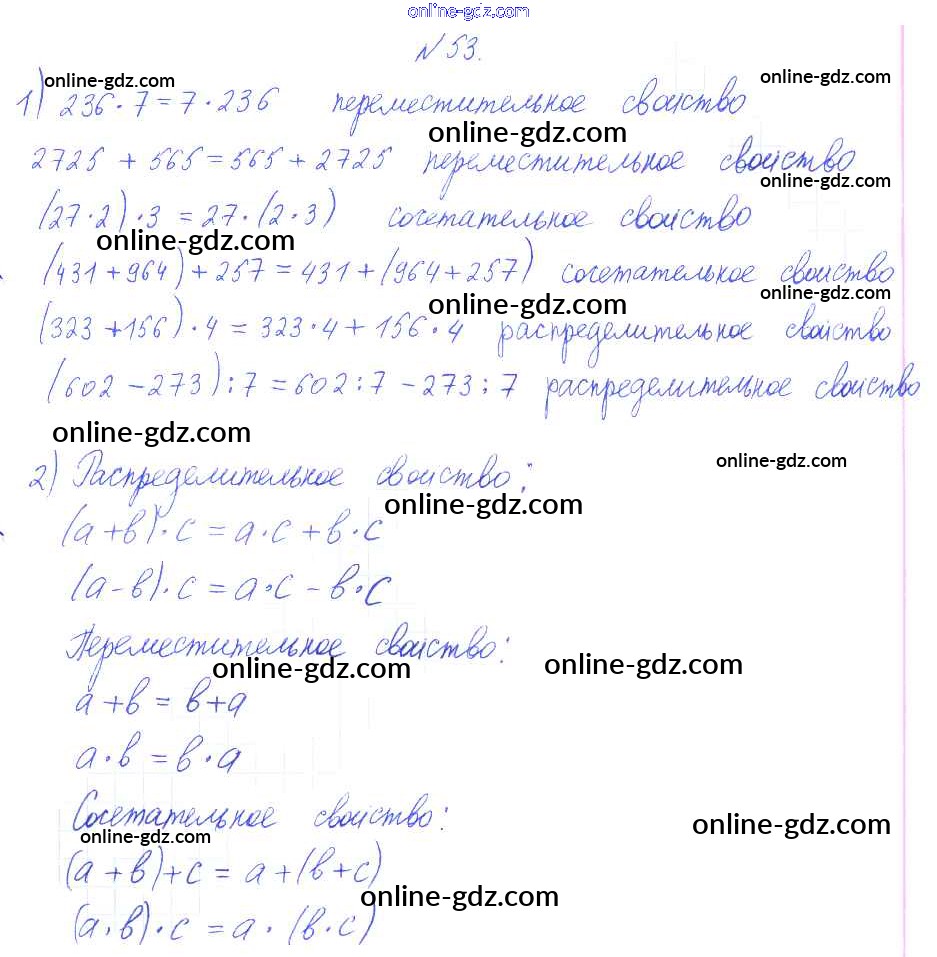 online-gdz.com
N 53.
online-gdz.com
online-gdz.com
1) 236 · 7 = 7 · 236 переместительное свойство
online-gdz.com
2725 + 565 = 565 + 2725 переместительное свойство
online-gdz.com
(27 · 2) · 3 = 27 · (2 · 3) сочетательное свойство
online-gdz.com
(431 + 964) + 257 = 431 + (964 + 257) сочетательное свойство
online-gdz.com
online-gdz.com
(323 + 156) · 4 = 323 · 4 + 156 · 4 распределительное свойство
(602 - 273) : 7 = 602 : 7 - 273 : 7 распределительное свойство
online-gdz.com
online-gdz.com
2) Распределительное свойство:
online-gdz.com
(a + b) · c = a · c + b · c
(a - b) · c = a · c - b · c
Переместительное свойство:
online-gdz.com
online-gdz.com
a + b = b + a
a · b = b · a
Сочетательное свойство:
online-gdz.com
online-gdz.com
(a + b) + c = a + (b + c)
online-gdz.com
(a · b) · c = a · (b · c)